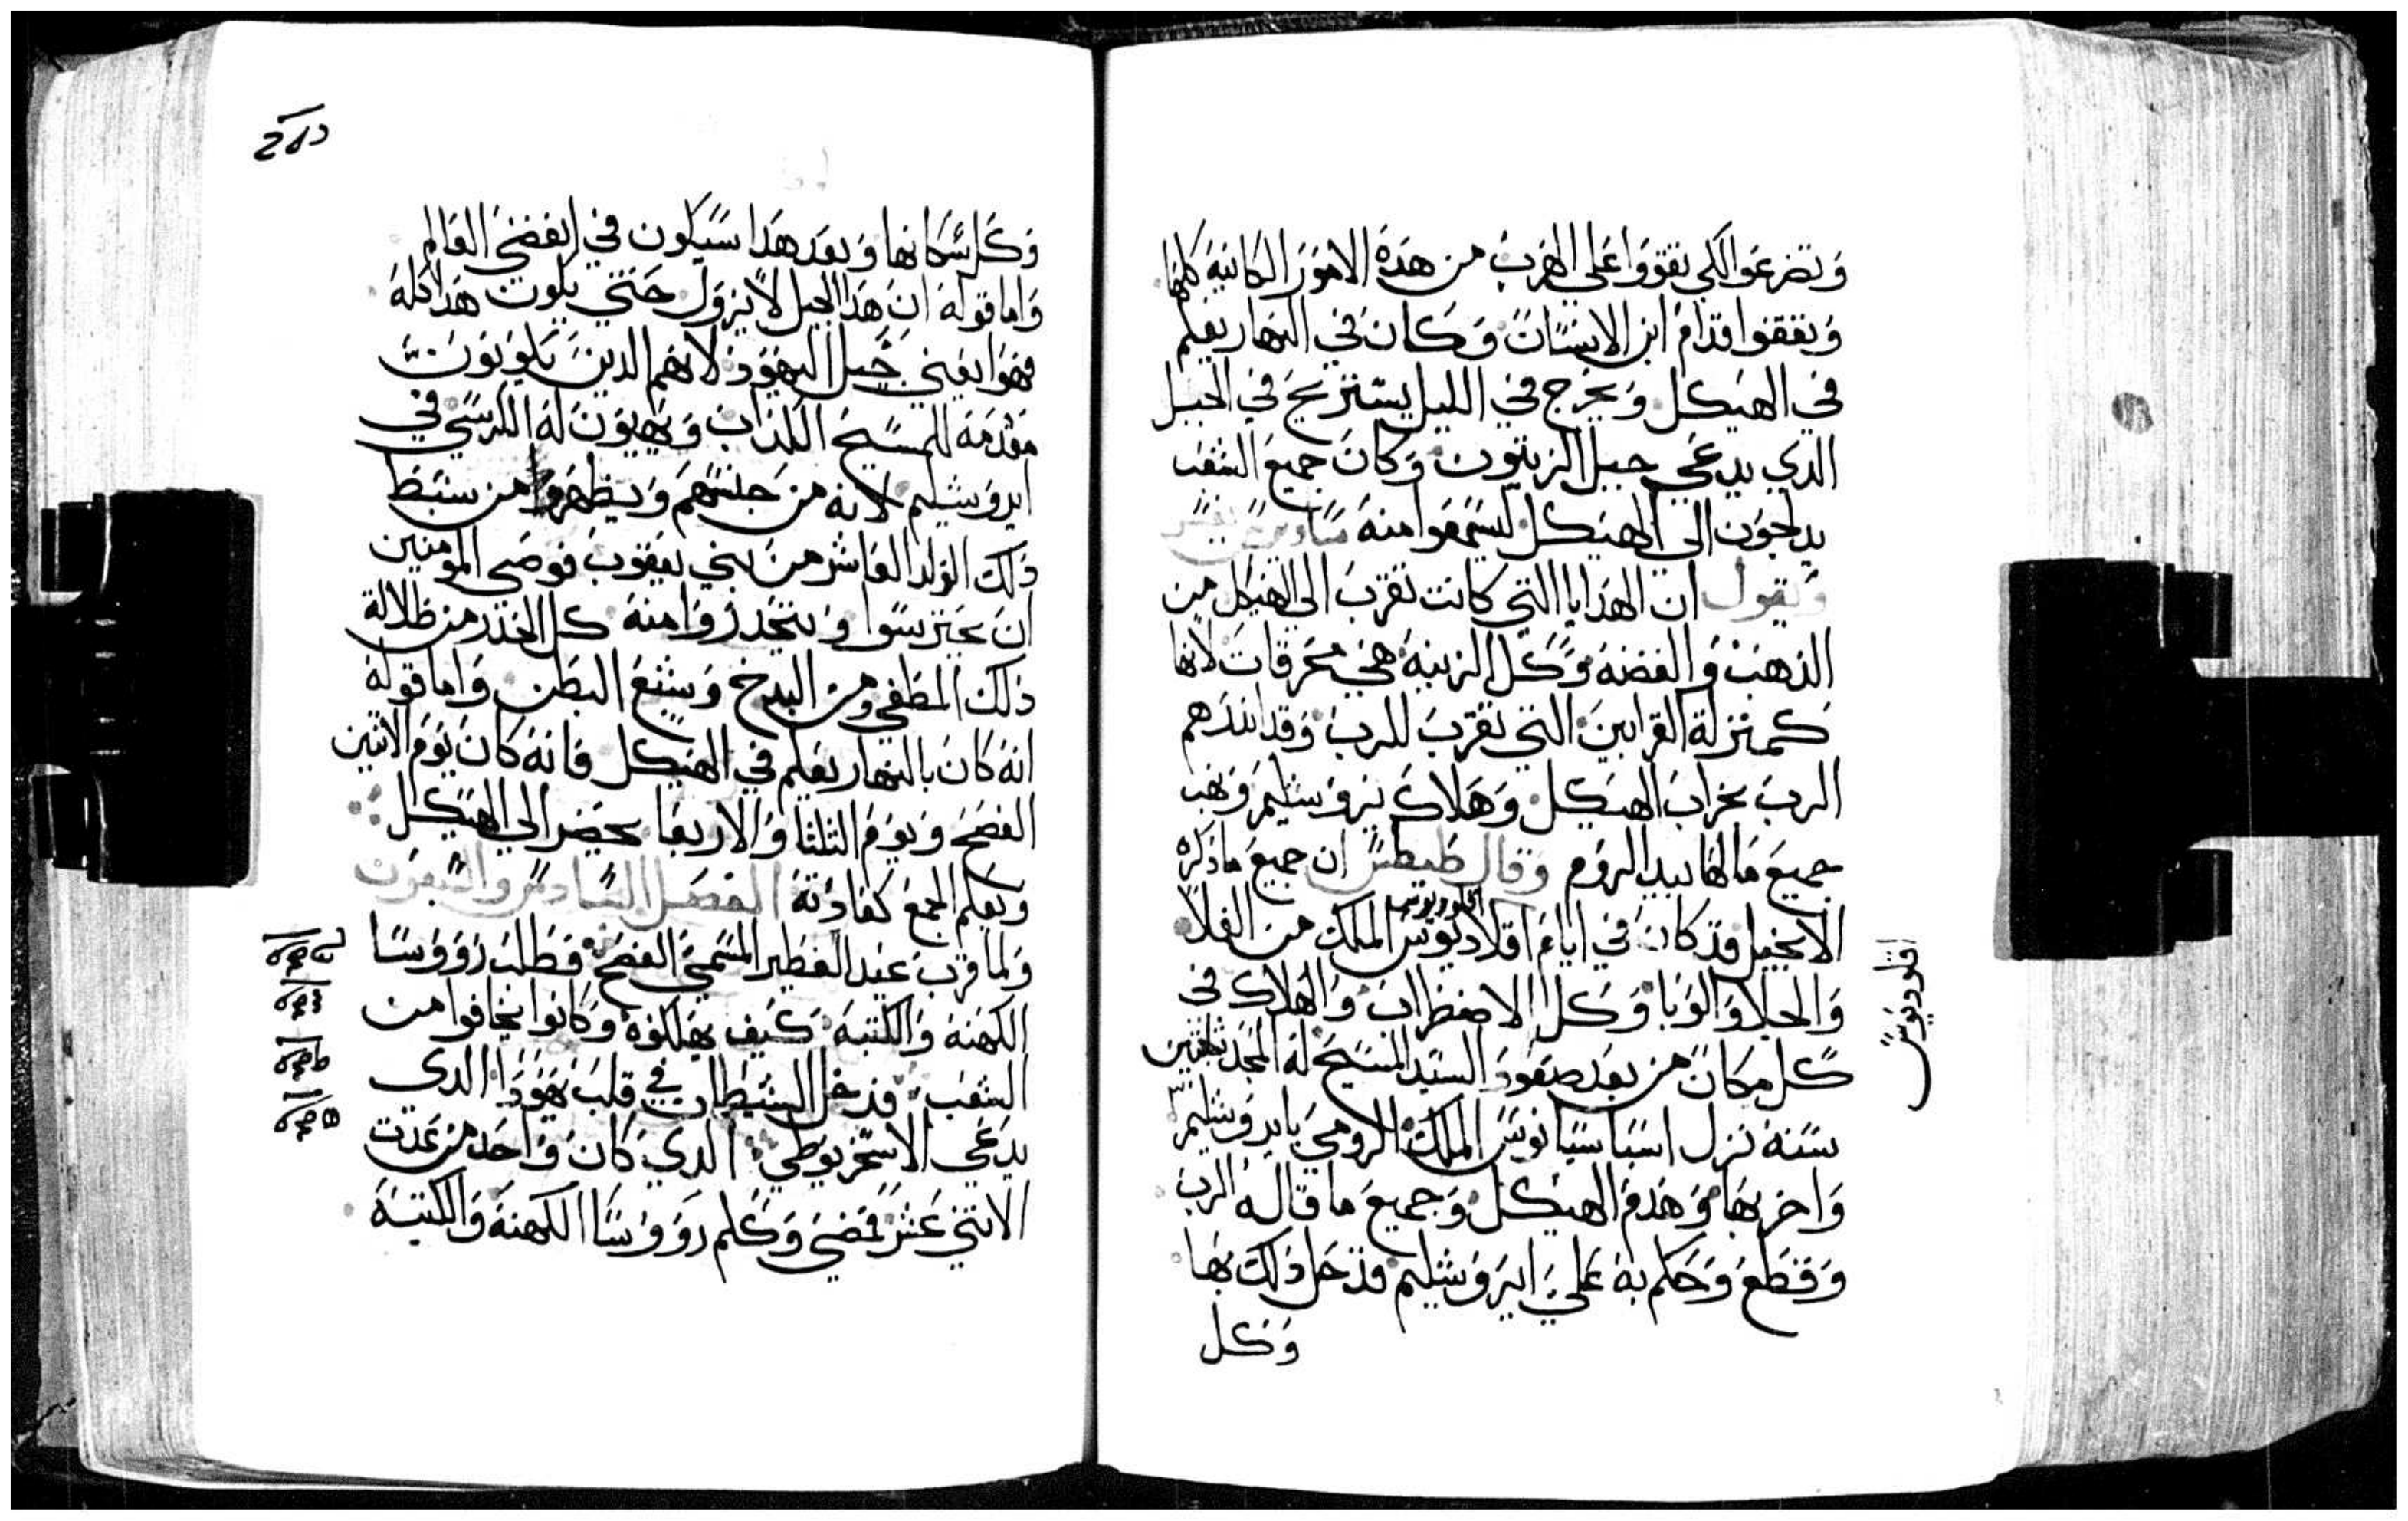 وتضرعوا لكي تقووا على الهرب من هذه الامور الكاينة كلها
وتقفوا قدام ابن الانسان وكان في النهار يعلم
في الهيكل ويخرج في الليل يستريح في الجبل
الدي يدعى جبل الزيتون وكان جميع الشعب
يدلجون الى الهيكل ليسمعوا منه
ويقول ان الهدايا التي كانت تقرب الى الهيكل من
الذهب والفضة وكل الزينة هي محرقات لانها
كمنزلة القرابين التي تقرب للرب وقد انذرهم
الرب بخراب الهيكل وهلاك يروشليم ونهب
جميع مالها بيد الروم وقال طيطس ان جميع ما ذكره
اقلوديوس
الانجيل قد كان في ايام اقلاديوس الملك من الغلا
والجلا والوبا وكل الاضطراب والهلاك في
كل مكان من بعد صعود السيد المسيح له المجد بثلثين
سنة نزل اسباسيانوس الملك الرومي بايروشليم
واخربها وهدم الهيكل وجميع ما قاله الرب
وقطع وحكم به على ايروشليم فدخل ذلك بها
وكل
اقلوديوس
وكل سكانها وبعد هدا سيكون في انقضى العالم
واما قوله ان هدا الجيل لا يزول حتى يكون هدا كله
فهوا يعني جيل اليهود لانهم الدين يكونون
مقدمة للمسيح الكداب ويهيون له الكرسي في
ايروشليم لانه من جنسهم ويظهر من سبط
ذلك الولد العاشر من بني يعقوب فوصى المومنين
ان يحترسوا ويتحدروا منه كل الحدر من ظلالة
ذلك المطغي ومن البدخ وشبع البطن واما قوله
انه كان بالنهار يعلم في الهيكل فانه كان يوم الاتنين
الفصح ويوم التلتا والاربعا يحضر الى الهيكل
ويعلم الجمع كعادته الفصل السادس والسبعون
ولما قرب عيد الفطير المسمى الفصح فطلب رووسا
الكهنة والكتبة كيف يهلكوه وكانوا يخافوا من
الشعب فدخل الشيطان في قلب يهودا الدى
يدعى الاسخريوطي الدي كان واحد من عدت
الاتني عشر فمضى وكلم رووسا الكهنة والكتبة